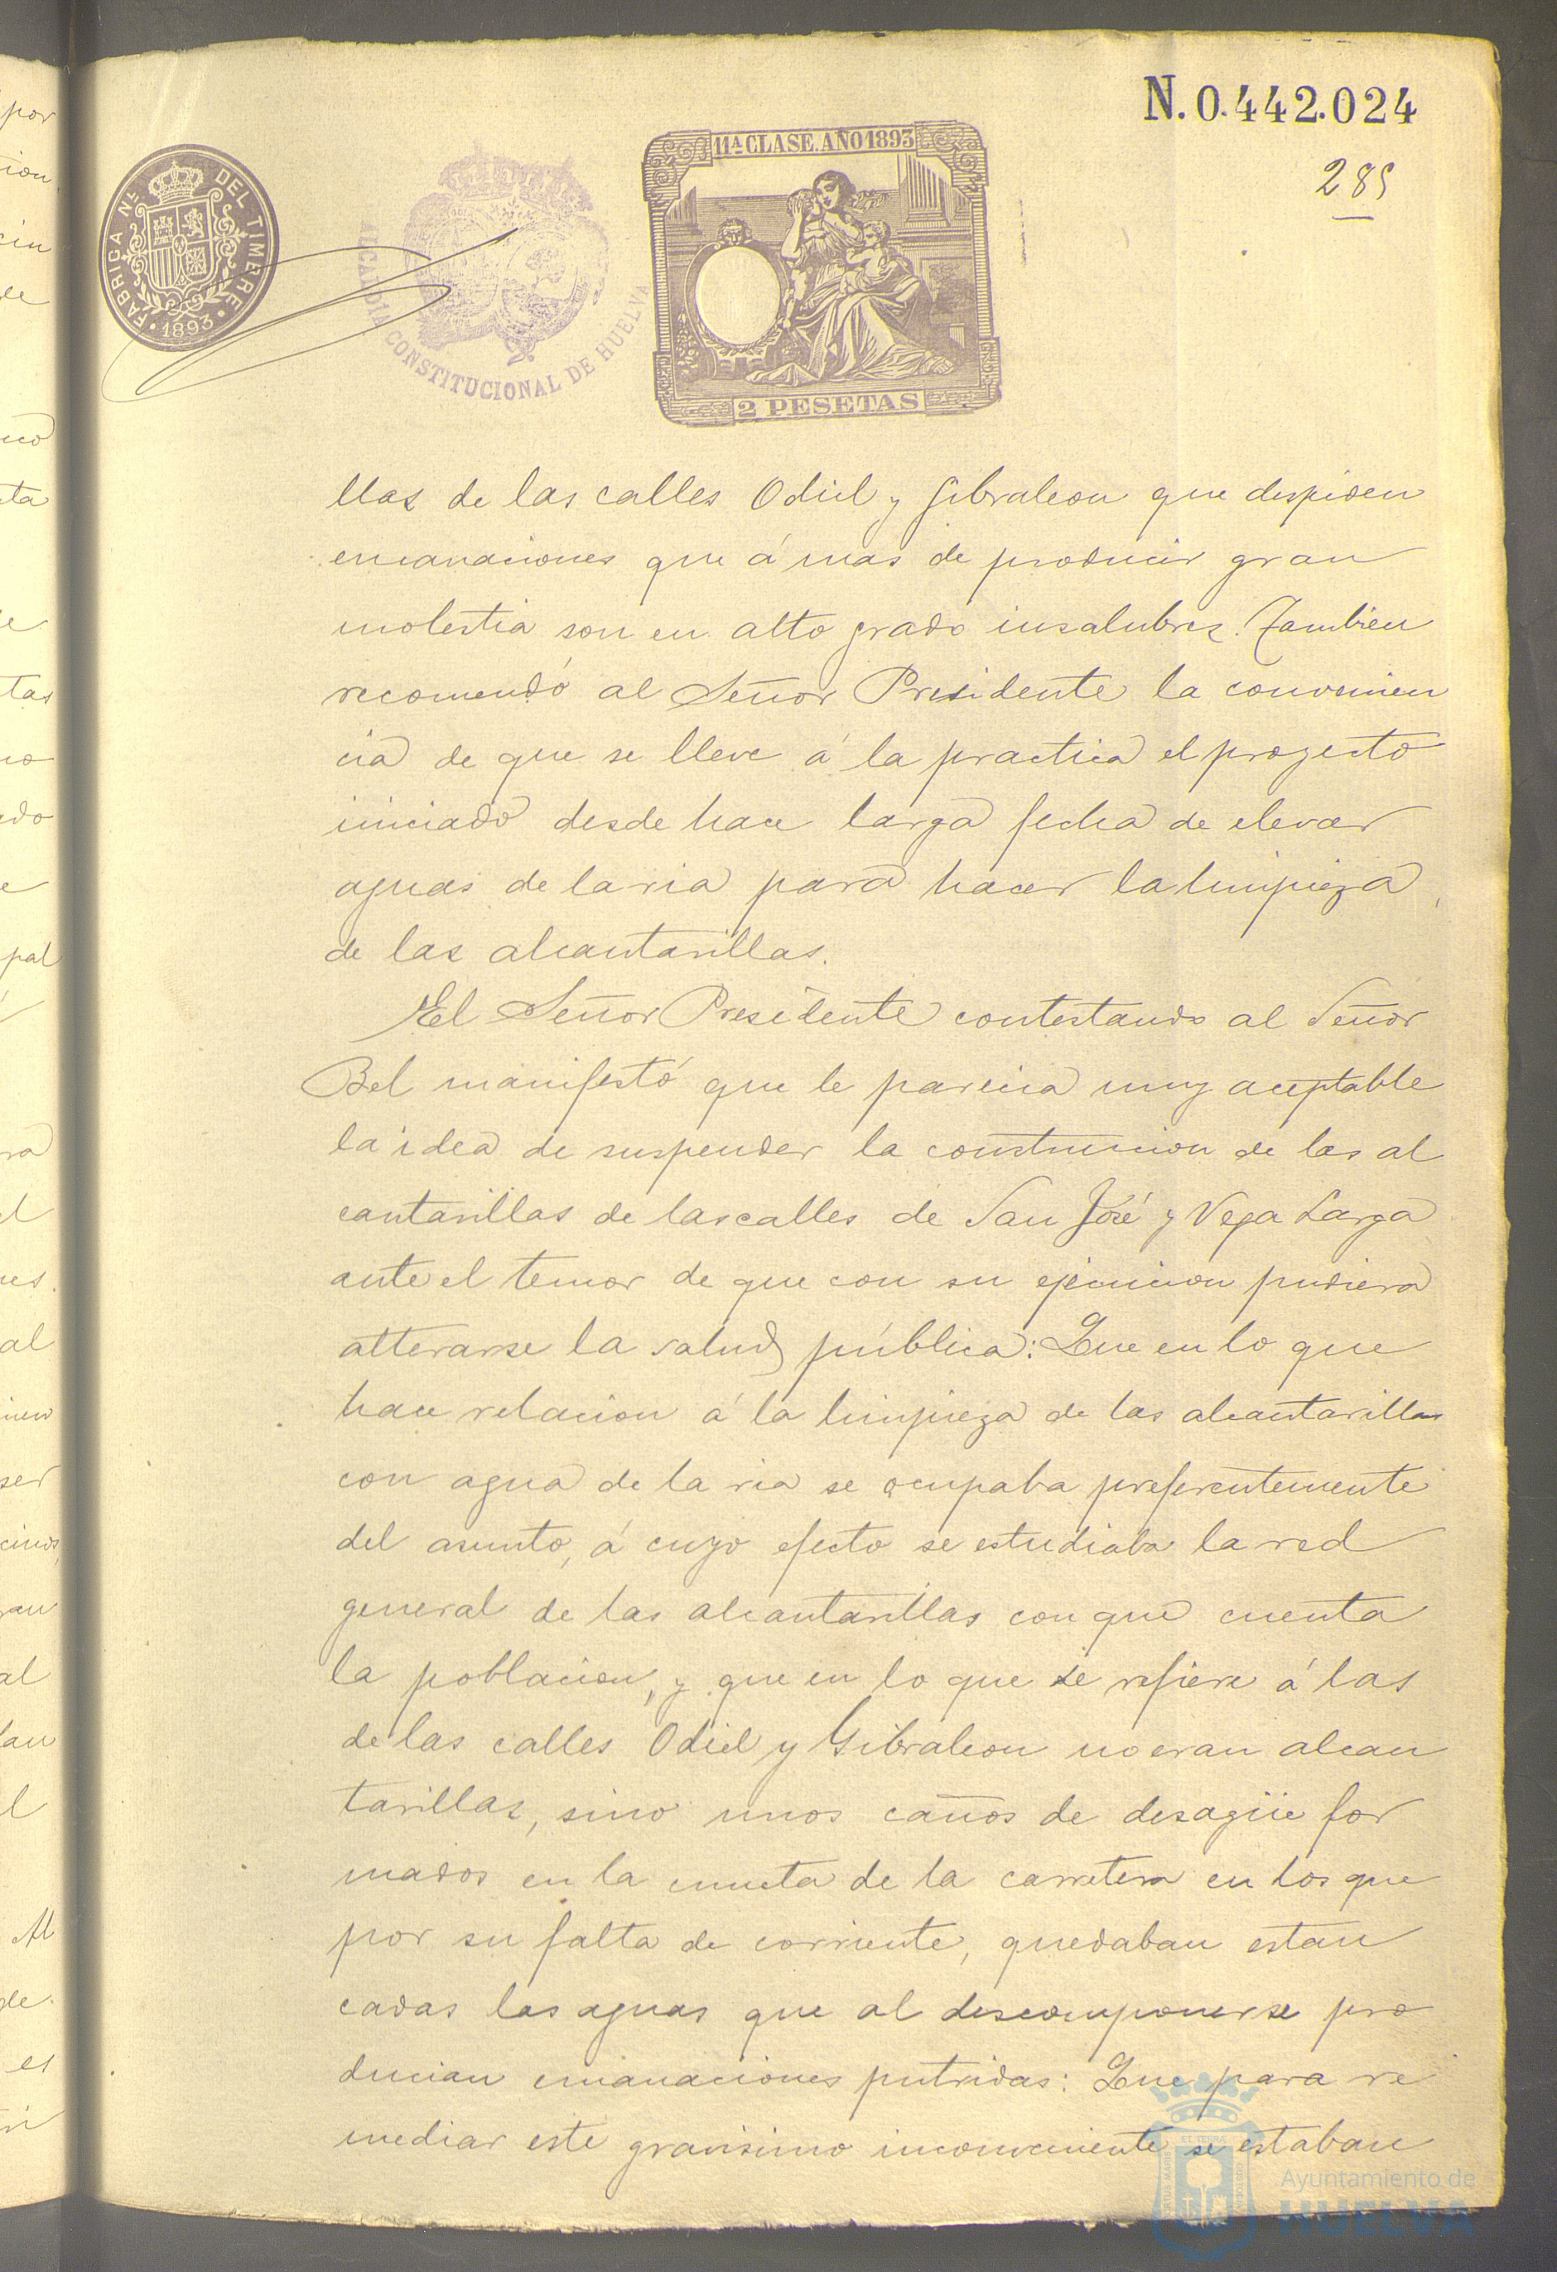 N. 0.442.024
285
11ª CLASE. AÑO 1893
FABRICA Nª DEL TIMBRE
1893
ALCALDIA CONSTITUCIONAL DE HUELVA
2 PESETAS
llas de las calles Odiel y Gibraleon que despiden
emanaciones que á mas de producir gran
molestia son en alto grado insalubres. Tambien
recomendó al Señor Presidente la convenien
cia de que se lleve á la practica el proyecto
iniciado desde hace larga fecha de elevar
aguas de la ria para hacer la limpieza
de las alcantarillas.
El Señor Presidente contestando al Señor
Bel manifestó que le parecia muy aceptable
la idea de suspender la construccion de las al
cantarillas de las calles de San José y Vega Larga
ante el temor de que con su ejecucion pudiera
alterarse la salud pública: Que en lo que
hace relacion á la limpieza de las alcantarillas
con agua de la ria se ocupaba preferentemente
del asunto, á cuyo efecto se estudiaba la red
general de las alcantarillas con que cuenta
la poblacion, y que en lo que se refiere á las
de las calles Odiel y Gibraleon no eran alcan
tarillas, sino unos caños de desagüe for
mados en la cuneta de la carretera en los que
por su falta de corriente, quedaban estan
cadas las aguas que al descomponerse pro
ducian emanaciones putridas: Que para re
mediar este gravisimo inconveniente se estaban
Ayuntamiento de
HUELVA